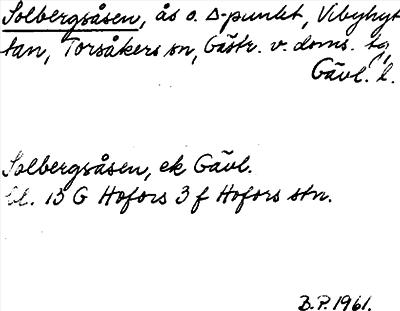 Solbergsåsen, ås o. Δ-punkt, Vibyhyt
tan, Torsåkers sn, Gästr. v. doms. tg,
Gävl. l.
Solbergsåsen, ek Gävl.
bl. 13 G Hofors 3 f Hofors stn.
B.P. 1961.